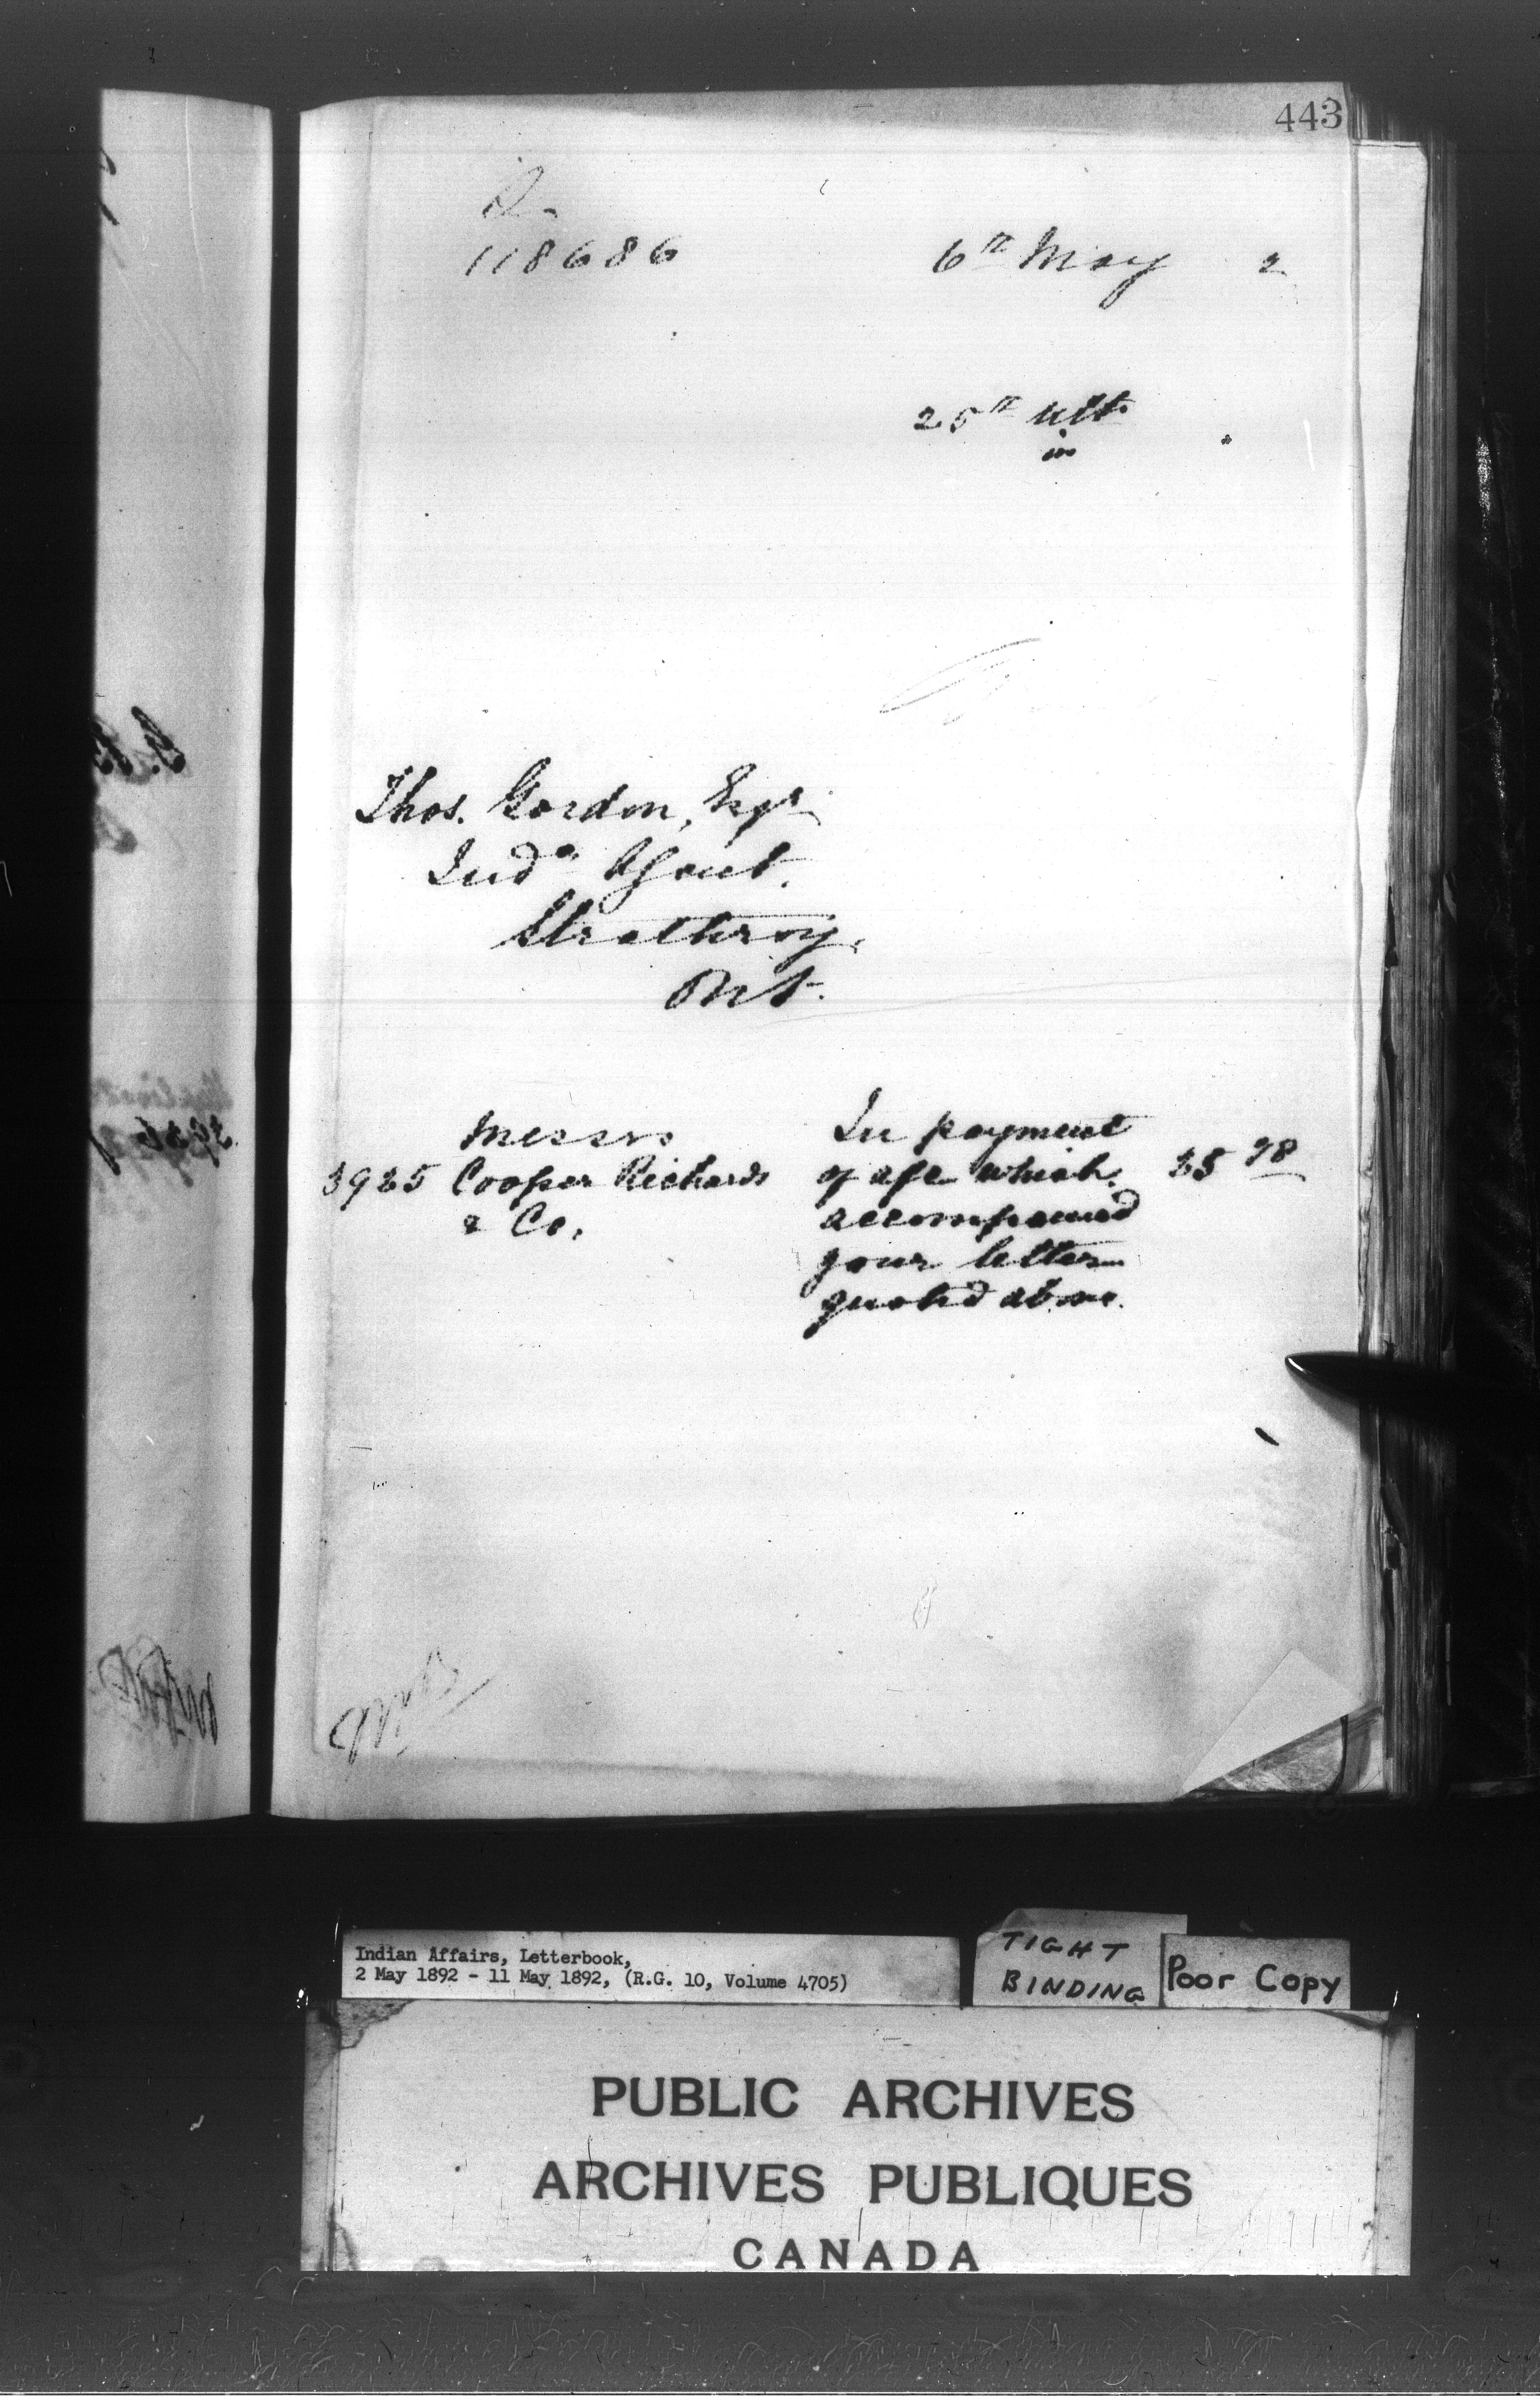 443
118686
6th May 2
25th ult.
in
Thos. Gordon, Esqr
Indn Agent.
Strathroy,
Ont.
Messrs
In payment
3925 Cooper Richards
of a/c which
& Co.
accompanied
your letter
quoted above.
Indian Affairs, Letterbook,
2 May 1892 - 11 May 1892, (R.G. 10, Volume 4705)
TIGHT
BINDING
Poor Copy
PUBLIC ARCHIVES
ARCHIVES PUBLIQUES
CANADA